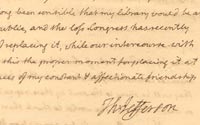 long been sensible that my library would be an
public, and the loss Congress has recently
of replacing it, while our intercourse with
this the proper moment for placing it at
ces of my constant & affectionate friendship
Th: Jefferson